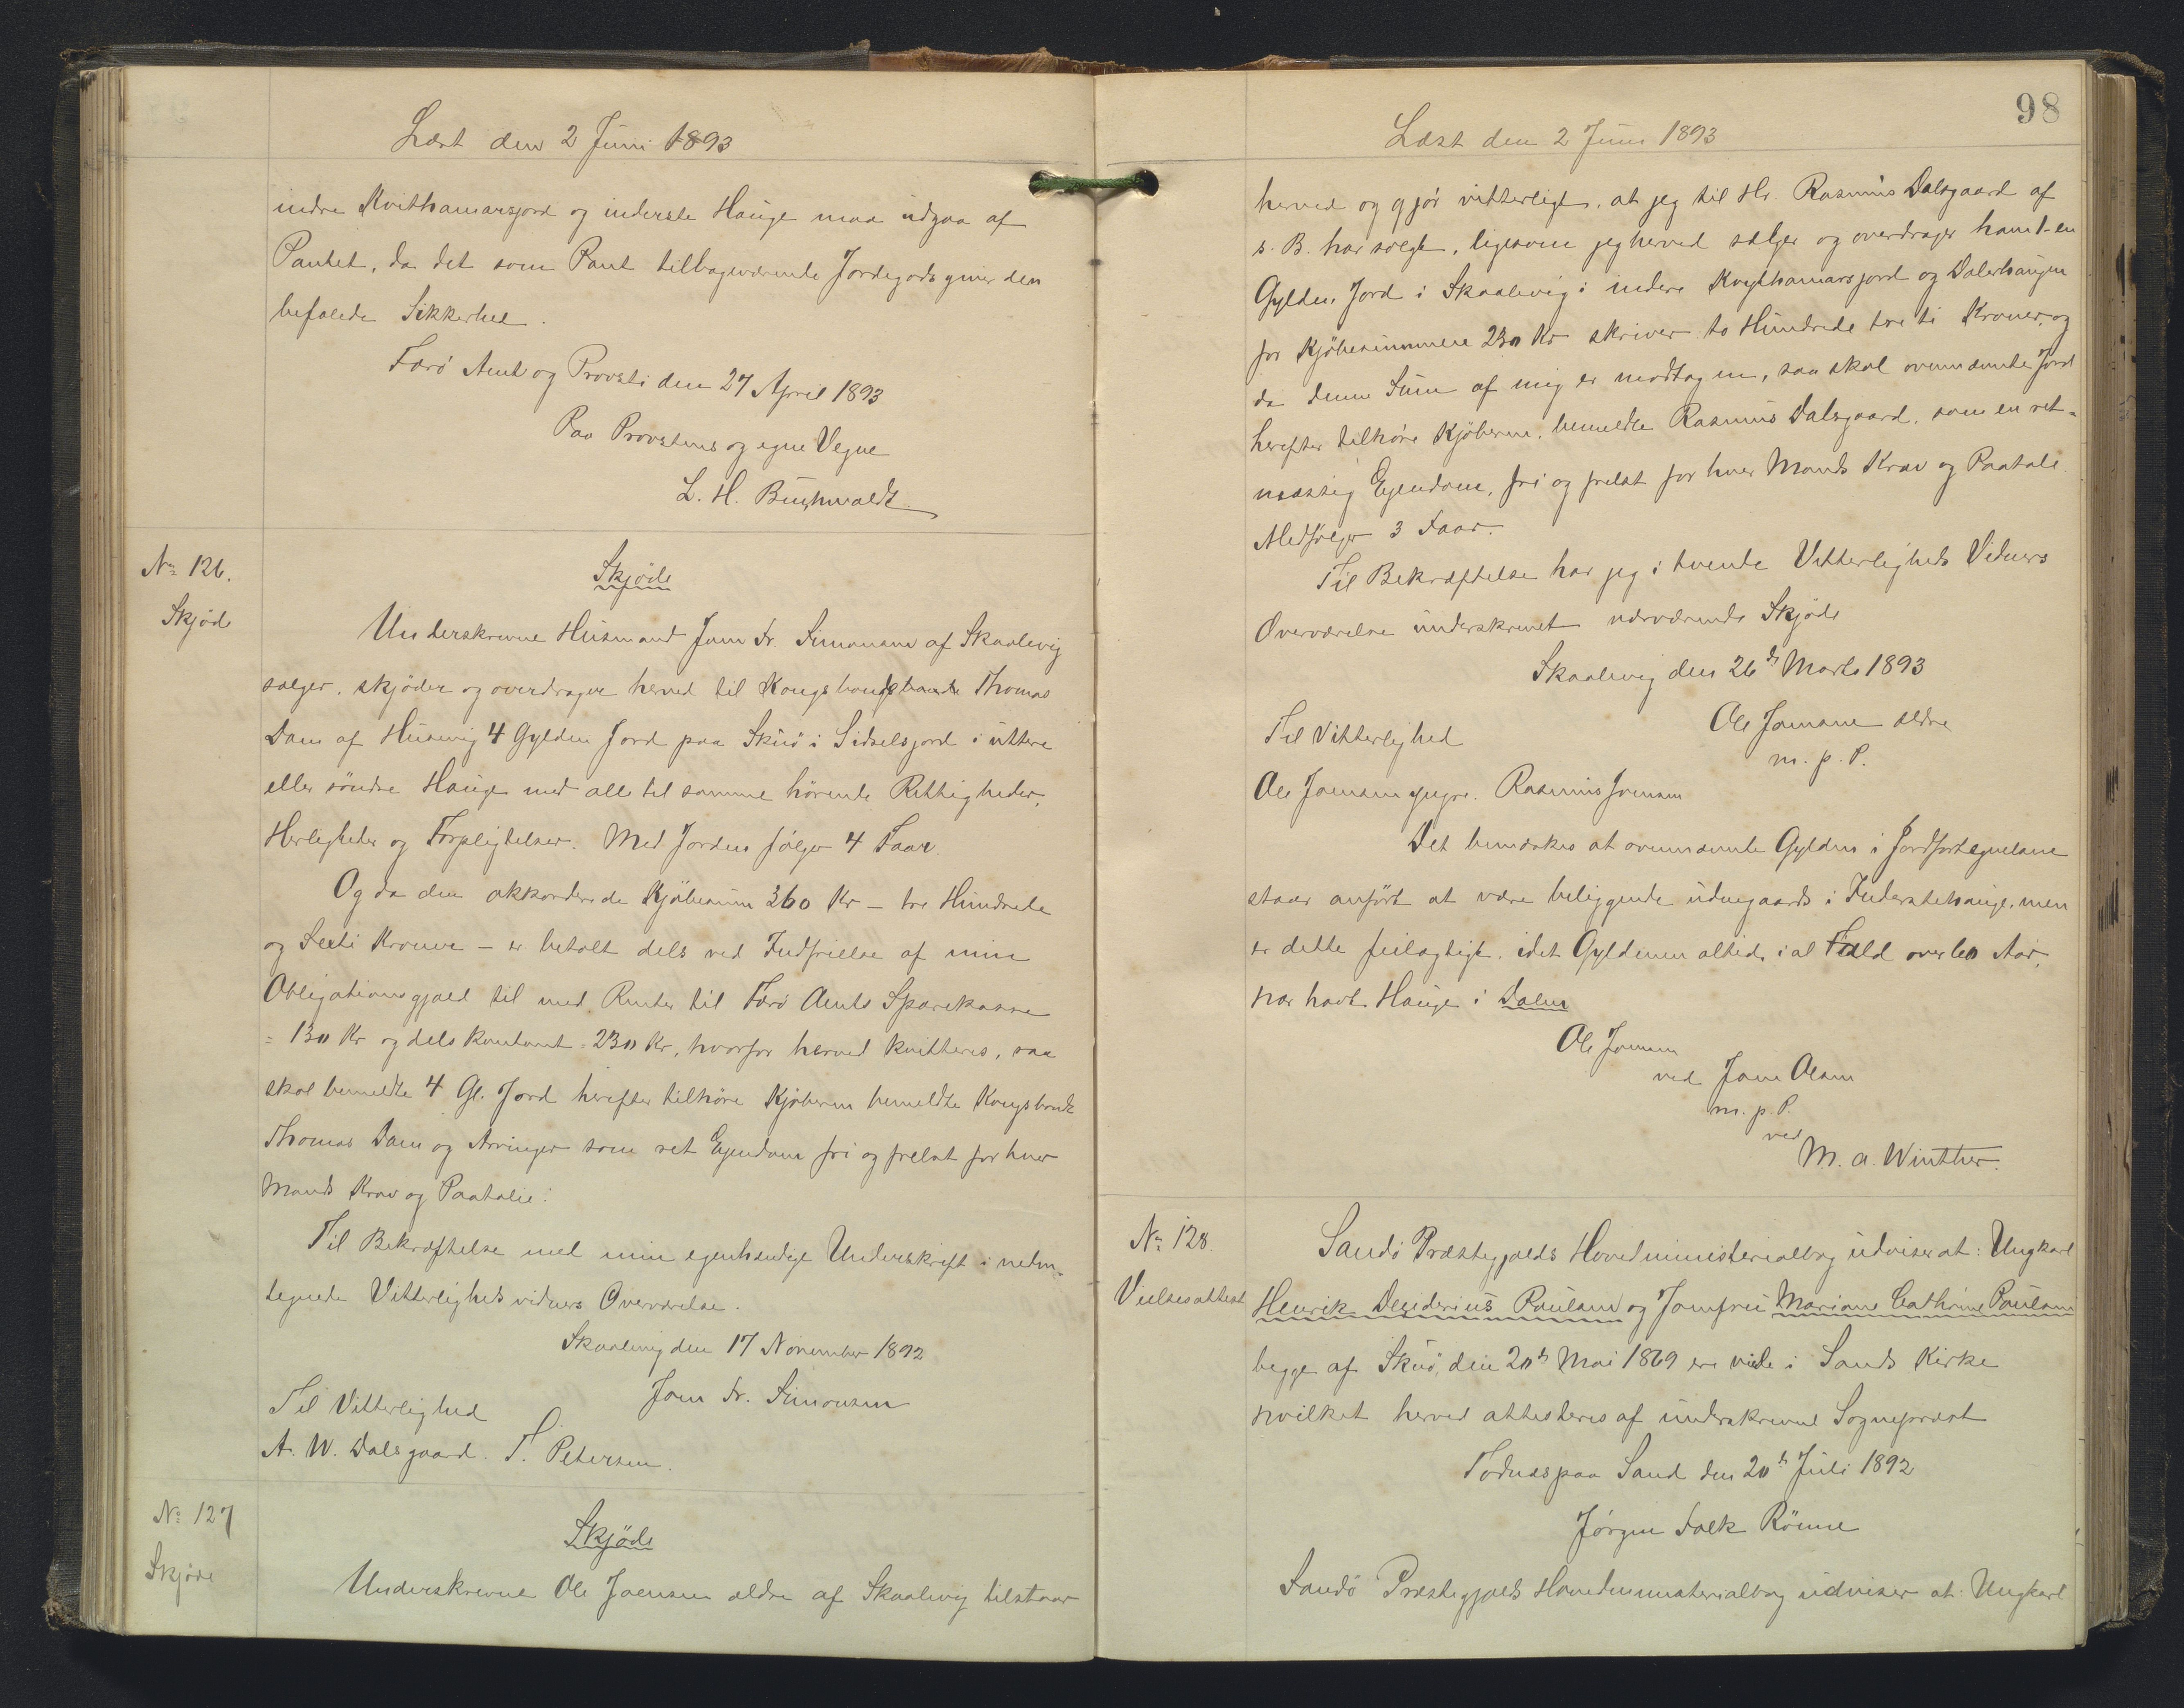 Læst den 2 Juni 1893
indre Kvithamarsjord og inderste Hauge maa udgaa af
Pantet, da det som Pant tilbageværende Jordegods giver den
befalede Sikkerhed.
Færö Amt og Provsti den 27 April 1893
Paa Provstens og egne Vegne
L. H. Buchwaldt
No 126.
Skjöde
Skjöde
Underskrevne Husmand Joen Fr. Simonsen af Skaalevig
sælger, skjöder og overdrager herved til Kongsbonde Thomas
Dam af Husevig 4 Gylden Jord paa Skuö i Sidselsjord i uttere
eller söndre Hauge med alle til samme hörende Rettigheder,
Herligheder og Forpligtelser. Med Jorden fölger 4 Faar.
Og da den akkorderede Kjöbesum 360 Kr – tre Hundrede
og Sexti Kroner – er betalt dels ved Indfrielse af min
Obligationsgjæld til med Renter til Færö Amts Sparekasse
= 130 Kr og dels kontant = 230 Kr, hvorfor herved kvitteres, saa
skal bemeldte 4 Gl. Jord herefter tilhöre Kjöberen bemeldte Kongsbonde
Thomas Dam og Arvinger som ret Ejendom fri og frelst for hver
Mands Krav og Paatale.
Til Bekræftelse med min egenhændige Underskrift i neden-
tegnede Vitterlighedsvidners Overværelse.
Skaalevig den 17 November 1892
Joen Fr. Simonsen
Til Vitterlighed
A. W. Dalsgaard. T. Petersen.
No 127
Skjöde
Skjöde
Underskrevne Ole Joensen ældre af Skaalevig tilstaar
98
Læst den 2 Juni 1893
herved og gjör vitterligt, at jeg til Hr. Rasmus Dalsgaard af
s. B. har solgt, ligesom jeg herved sælger og overdrager ham 1- en
Gylden Jord i Skaalevig i indere Kvythamarsjord og Dalerhaugen
for Kjöbesummen 230 Kr skriver to Hundrede tre ti Kroner, og
da denne Sum af mig er modtagen, saa skal ovennævnte Jord
herefter tilhöre Kjöberen, bemeldte Rasmus Dalsgaard, som en ret-
mæssig Ejendom, fri og frelst for hver Mands Krav og Paatale.
Medfölger 3 Faar.
Til Bekræftelse har jeg i tvende Vitterligheds Vidners
Overværelse underskrevet nærværende Skjöde
Skaalevig den 26de Marts 1893
Ole Joensen ældre
m. p. P.
Til Vitterlighed
Ole Joensen yngre. Rasmus Joensen
Det bemærkes at ovennævnte Gylden i Jordfortegnelsen
staar anfört at være beliggende udengaards i Inderstehauge, men
er dette feilagtigt, idet Gyldenen altid, i al Fald over 60 Aar,
har havt Hauge i Dalen
Ole Joensen
ved Joen Olsen
m. p. P.
ved
M. A. Winther.
No 128.
Vielsesattest
Sandö Præstegjælds Hovedministerialbog udviser at: Ungkarl
Henrik Desiderius Poulsen og Jomfru Mariane Cathrine Poulsen
begge af Skuö, den 20de Mai 1869 ere viede i Sands Kirke
hvilket herved attesteres af underskrevne Sognepræst
Todnæs paa Sand den 20de Juli 1892
Jörgen Falk Rönne
Sandö Præstegjælds Hovedministerialbog udviser at Ungkarl